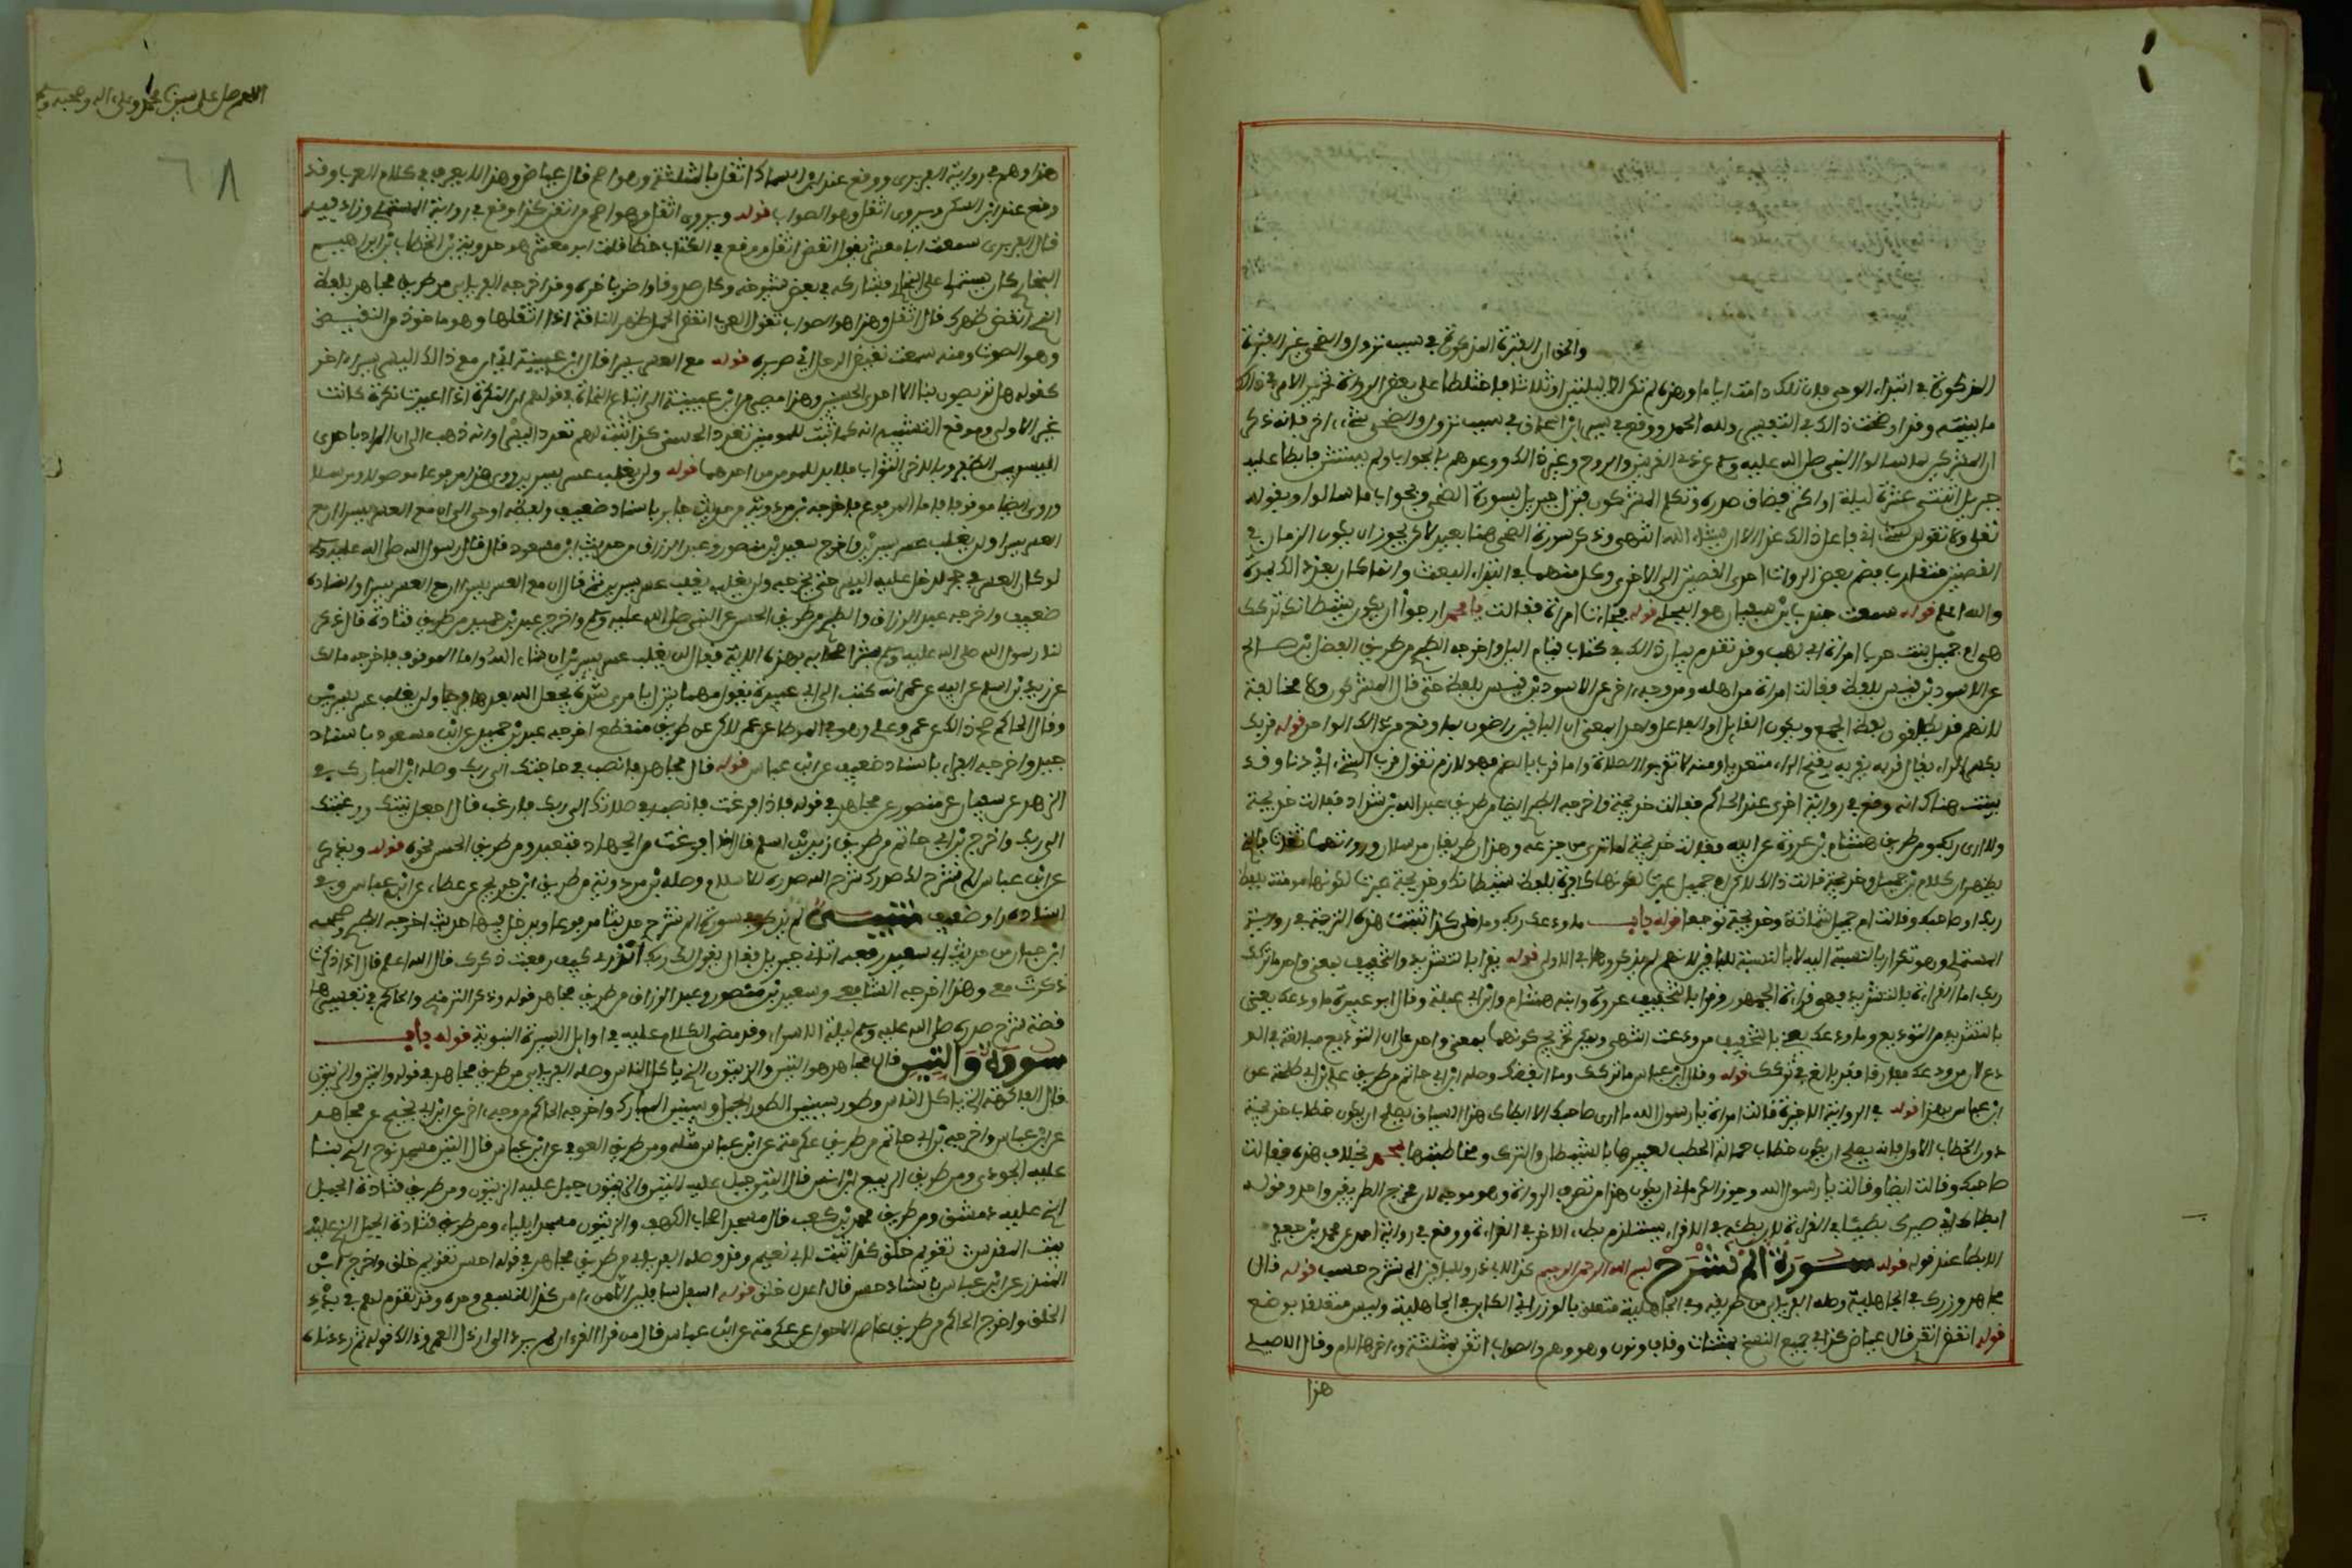 والحق ان الفترة المذكورة في سبب نزول والضحى غير الفترة
المذكورة في ابتداء الوحي فان تلك دامت اياما وهذه لم تكن الا ليلتين او ثلاثا فاختلطا على بعض الرواة وتحرير الامر في ذلك
ما بينته وقد اوضحت ذلك في التعبير ولله الحمد ووقع في سيرة ابن اسحاق في سبب نزول والضحى شيء اخر فانه ذكر
ان المشركين لما سالوا النبي صلى الله عليه وسلم عن ذي القرنين والروح وغير ذلك ووعدهم بالجواب ولم يستثن فابطا عليه
جبريل اثنتي عشرة ليلة او اكثر فضاق صدره وتكلم المشركون فنزل جبريل بسورة الضحى وبجواب ما سالوا وبقوله
تعلى ولا تقولن لشيء اني فاعل ذلك غدا الا ان يشاء الله انتهى وذكر سورة الضحى هنا بعيد لاكن يجوز ان يكون الزمان في
القصتين متقاربا فضم بعض الرواة احدى القصتين الى الاخرى وكل منهما لم يكن في ابتداء البعث وانما كان بعد ذلك بمدة
والله اعلم قوله سمعت جندب بن سفيان هو البجلي قوله فجاءت امراة فقالت يا محمد اني ارجوا ان يكون شيطانك تركك
هي ام جميل بنت حرب امراة ابي لهب وقد تقدم بيان ذلك في كتاب قيام الليل واخرجه الطبري من طريق المفضل بن صالح
عن الاسود بن قيس بلفظ فقالت امراة من اهله ومن وجه اخر عن الاسود بن قيس بلفظ حتى قال المشركون ولا مخالفة
لانهم قد يطلقون لفظ الجمع ويكون القايل او الفاعل واحدا بمعنى ان الباقين راضون بما وقع من ذلك الواحد قوله قربك
بكسر الراء يقال قربه يقربه بفتح الراء متعديا ومنه لا تقربوا الصلاة واما قرب بالضم فهو لازم تقول قرب الشيء اي دنا وقد
بينت هناك انه وقع في رواية اخرى عند الحاكم فقالت خديجة واخرجه الطبري ايضا من طريق عبد الله بن شداد فقالت خديجة
ولا ارى ربك ومن طريق هشام بن عروة عن ابيه فقالت خديجة لما ترى من جزعه وهذان طريقان مرسلان ورواتهما ثقات فالذي
يظهر ان كلا من ام جميل وخديجة قالت ذلك لاكن ام جميل عبرت لكونها كافرة بلفظ شيطانك وخديجة عبرت لكونها مومنة بلفظ
ربك او صاحبك وقالت ام جميل شماتة وخديجة توجعا قوله باب ما ودعك ربك وما قلى كذا ثبتت هذه الترجمة في رواية
المستملي وهو تكرار بالنسبة اليه لا بالنسبة للباقين لانهم لم يذكروها في الاولى قوله يقرا بالتشديد والتخفيف بمعنى واحد ما تركك
ربك اما القراءة بالتشديد فهي قراءة الجمهور وقرا بالتخفيف عروة وابنه هشام وابن ابي عبلة وقال ابو عبيدة ما ودعك يعني
بالتشديد من التوديع وما ودعك يعني بالتخفيف من ودعت انتهى ويمكن تخريج كونهما بمعنى واحد على ان التوديع مبالغة في الو
دع لان من ودعك مفارقا فقد بالغ في تركك قوله وقال ابن عباس ما تركك وما ابغضك وصله ابن ابي حاتم من طريق علي بن ابي طلحة عن
ابن عباس بهذا قوله في الرواية الاخيرة قالت امراة يا رسول الله ما ارى صاحبك الا ابطاك هذا السياق يصلح ان يكون خطاب خديجة
دون الخطاب الاول فانه يصلح ان يكون خطاب حمالة الحطب لتعبيرها بالشيطان والترك ومخاطبتها بمحمد بخلاف هذه فقالت
صاحبك وقالت ابطا وقالت يا رسول الله وجوز الكرماني ان يكون هذا من تصرف الرواة وهو موجه لان مخرج الطريقين واحد وقوله
ابطاك اي صيرك بطيئا في القراءة لان بطئه في الاقراء يستلزم بطء الاخر في القراءة ووقع في رواية احمد عن محمد بن جعفر
الا ابطا عنك قوله قوله سورة الم نشرح لبسم الله الرحمن الرحيم كذا لابي ذر وللباقين الم نشرح حسب قوله قال
مجاهد وزرك في الجاهلية وصله الفريابي من طريقه وفي الجاهلية متعلق بالوزر اي الكاين في الجاهلية وليس متعلقا بوضع
قوله انقض اتقن قال عياض كذا في جميع النسخ بمثناة وقاف ونون وهو وهم والصواب اثقل بمثلثة واخرها لام وقال الاصيلي
هذا
اللهم صل على سيدنا محمد وعلى اله وصحبه وسلم
٦٨
هذا وهم في رواية الفربري ووقع عند ابن السماك اثقل بالمثلثة وهو اصح قال عياض وهذا لا يعرف في كلام العرب وقد
وقع عند ابن السكن ويروى اثقل وهو الصواب قوله ويروى اثقل وهو اصح من اتقن كذا وقع في رواية المستملي وزاد فيه
قال الفربري سمعت ابا معشر يقول انقض اثقل ووقع في الكتاب خطا قلت ابو معشر هو حمدويه بن الخطاب بن ابراهيم
البخاري كان يستملي على البخاري ويشاركه في بعض شيوخه وكان صدوقا واضر باخره وقد اخرجه الفريابي من طريق مجاهد بلفظ
الذي انقض ظهرك قال اثقل وهذا هو الصواب تقول العرب انقض الحمل ظهر الناقة اذا اثقلها وهو ماخوذ من النقيض
وهو الصوت ومنه سمعت نقيض الرحل اي صريره قوله مع العسر يسرا قال ابن عيينة اي ان مع ذلك العسر يسرا اخر
كقوله هل تربصون بنا الا احدى الحسنيين وهذا مصير من ابن عيينة الى اتباع النحاة في قولهم ان النكرة اذا اعيدت نكرة كانت
غير الاولى وموقع التشبيه انه كما ثبت للمومنين تعدد الحسنى كذا ثبت لهم تعدد اليسر او انه ذهب الى ان المراد باحدى
اليسرين الظفر وبالاخر الثواب فلابد للمومن من احدهما قوله ولن يغلب عسر يسرين روي هذا مرفوعا موصولا ومرسلا
وروي ايضا موقوفا اما المرفوع فاخرجه بن مردويه من حديث جابر باسناد ضعيف ولفظه اوحي الي ان مع العسر يسرا ان مع
العسر يسرا ولن يغلب عسر يسرين واخرج سعيد بن منصور وعبد الرزاق من حديث ابن مسعود قال قال رسول الله صلى الله عليه وسلم
لو كان العسر في جحر لدخل عليه اليسر حتى يخرجه ولن يغلب عسر يسرين ثم قال ان مع العسر يسرا ان مع العسر يسرا واسناده
ضعيف واخرجه عبد الرزاق والطبري من طريق الحسن عن النبي صلى الله عليه وسلم واخرج عبد بن حميد من طريق قتادة قال ذكر
لنا رسول الله صلى الله عليه وسلم بشر اصحابه بهذه الاية فقال لن يغلب عسر يسرين ان شاء الله واما الموقوف فاخرجه مالك
عن زيد بن اسلم عن ابيه عن عمر انه كتب الى ابي عبيدة يقول مهما ينزل بامرئ من شدة يجعل الله بعدها فرجا ولن يغلب عسر يسرين
وقال الحاكم صح ذلك عن عمر وعلي وهو في الموطا عن عمر لاكن من طريق منقطع اخرجه عبد بن حميد عن ابن مسعود باسناد
جيد واخرجه الفراء باسناد ضعيف عن ابن عباس قوله قال مجاهد فانصب في حاجتك الى ربك وصله ابن المبارك في
الزهد عن سفيان عن منصور عن مجاهد في قوله فاذا فرغت فانصب في صلاتك الى ربك فارغب قال اجعل نيتك ورغبتك
الى ربك واخرج بن ابي حاتم من طريق زيد بن اسلم قال اذا فرغت من الجهاد فتعبد ومن طريق الحسن نحوه قوله ويذكر
عن ابن عباس الم نشرح لك صدرك شرح الله صدره للاسلام وصله بن مردويه من طريق ابن جريج عن عطاء عن ابن عباس وفي
اسناده راو ضعيف تنبيه لم يذكر في سورة الم نشرح حديثا مرفوعا ويدخل فيها حديث اخرجه الطبري وصححه
ابن حبان من حديث ابي سعيد رفعه اتاني جبريل فقال يقول لك ربك اتدري كيف رفعت ذكرك قال الله اعلم قال اذا ذكرت
ذكرت معي وهذا اخرجه الشافعي وسعيد بن منصور وعبد الرزاق من طريق مجاهد قوله وذكر الترمذي والحاكم في تفسيرها
قصة شرح صدره صلى الله عليه وسلم ليلة الاسراء وقد مضى الكلام عليه في اوايل السيرة النبوية قوله باب
سورة والتين قال مجاهد هو التين والزيتون الذي ياكل الناس وصله الفريابي من طريق مجاهد في قوله والتين والزيتون
قال الفاكهة التي ياكل الناس وطور سينين الطور الجبل وسينين المبارك واخرجه الحاكم من وجه اخر عن ابن ابي نجيح عن مجاهد
عن ابن عباس واخرجه بن ابي حاتم من طريق عكرمة عن ابن عباس مثله ومن طريق العوفي عن ابن عباس قال التين مسجد نوح الذي بنى
على الجودي ومن طريق الربيع بن انس قال التين جبل عليه التين والزيتون جبل عليه الزيتون ومن طريق قتادة الجبل
الذي عليه دمشق ومن طريق محمد بن كعب قال مسجد اصحاب الكهف والزيتون مسجد ايلياء ومن طريق قتادة الجبل الذي عليه
بيت المقدس تقويم خلق كذا ثبت لابي نعيم وقد وصله الفريابي من طريق مجاهد في قوله احسن تقويم خلق واخرج ابن
المنذر عن ابن عباس باسناد حسن قال اعدل خلق قوله اسفل سافلين الا من امن كذا للنسفي وحده وقد تقدم لهم في بدء
الخلق واخرج الحاكم من طريق عاصم الاحول عن عكرمة عن ابن عباس قال من قرا القرءان لم يرد الى ارذل العمر وذلك قوله ثم رددناه